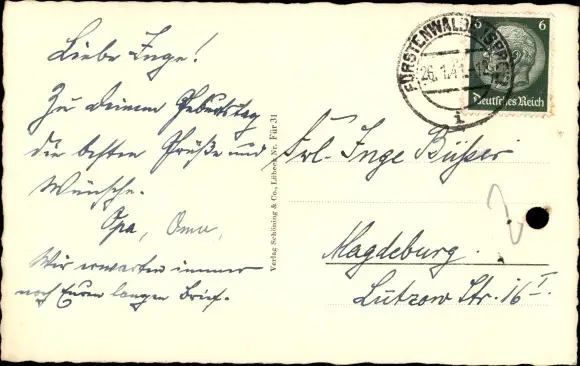 Liebe Inge!
Zu Deinem Geburtstag
die besten Grüße und
Wünsche.
Opa, Oma,
Wir erwarten immer
noch Euren langen Brief.
Verlag Schöning & Co., Lübeck Nr. Für 31
FÜRSTENWALDE (SPREE)
26.1.41
i
6 6
Deutsches Reich
Frl. Inge
Magdeburg.
Lützow Str. 16 I.